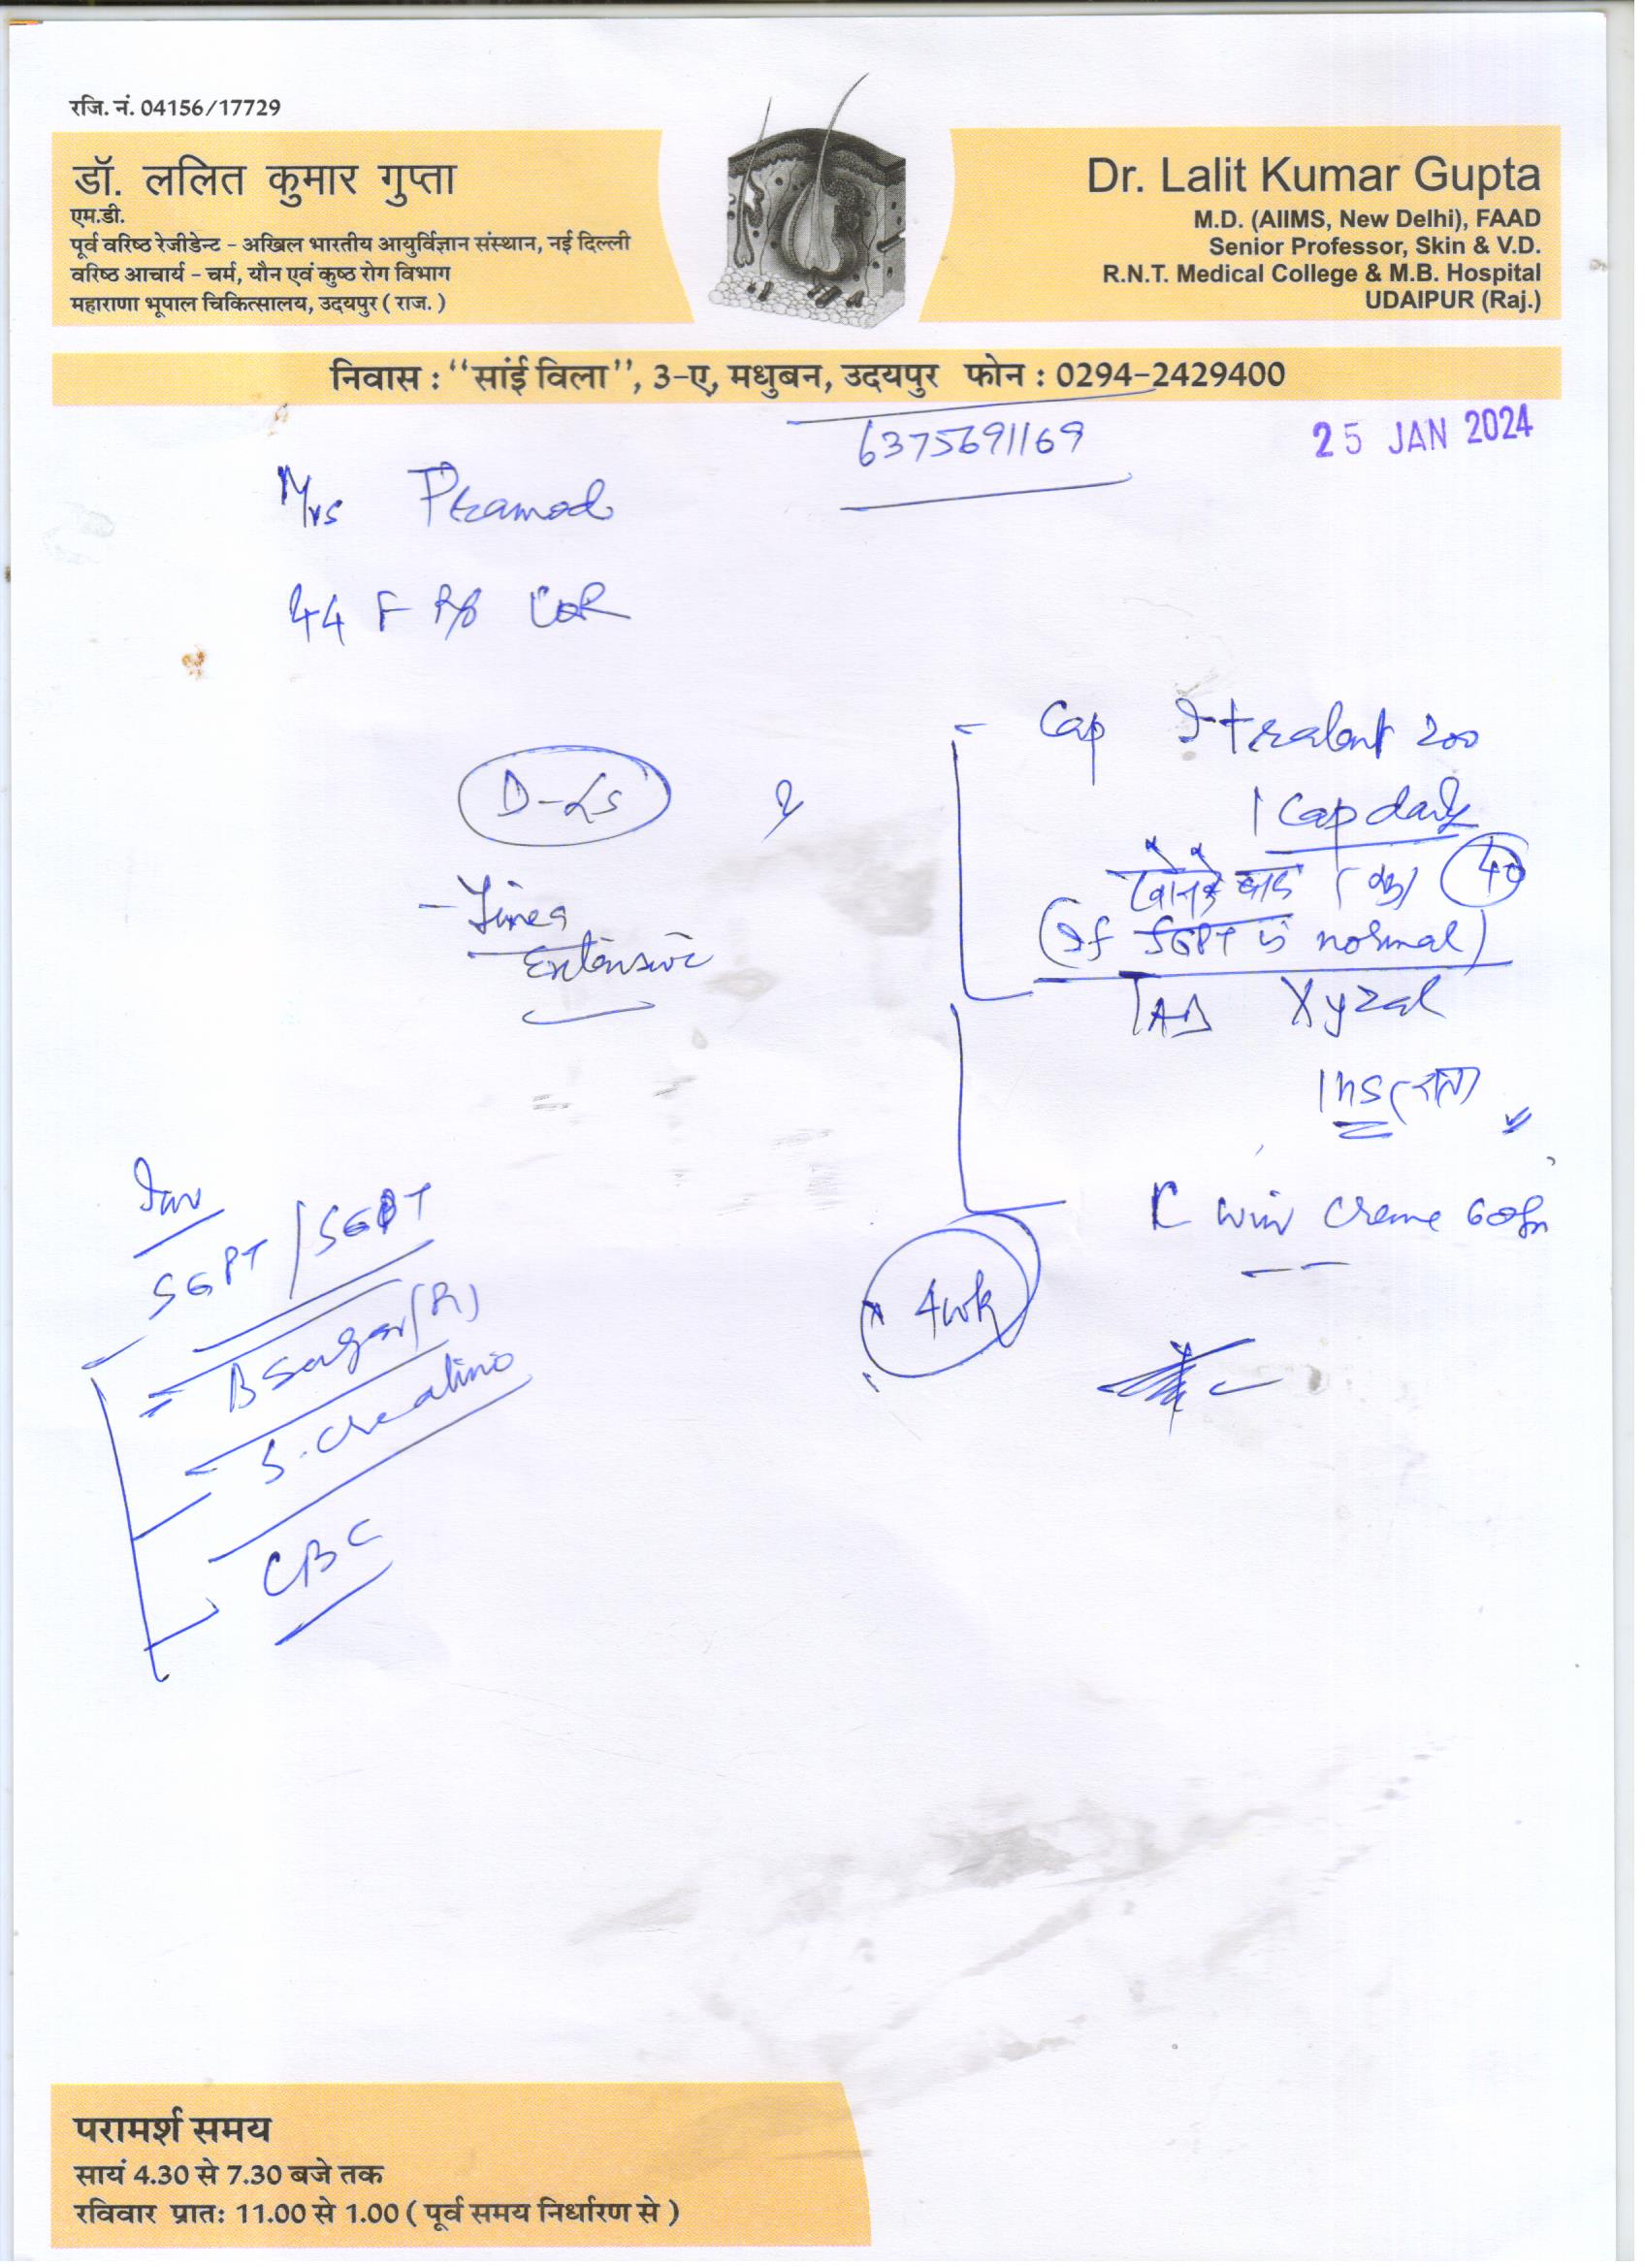 रजि. नं. 04156/17729
डॉ. ललित कुमार गुप्ता
एम.डी.
पूर्व वरिष्ठ रेजीडेन्ट - अखिल भारतीय आयुर्विज्ञान संस्थान, नई दिल्ली
वरिष्ठ आचार्य - चर्म, यौन एवं कुष्ठ रोग विभाग
महाराणा भूपाल चिकित्सालय, उदयपुर ( राज. )
Dr. Lalit Kumar Gupta
M.D. (AIIMS, New Delhi), FAAD
Senior Professor, Skin & V.D.
R.N.T. Medical College & M.B. Hospital
UDAIPUR (Raj.)
निवास : "सांई विला", 3-ए, मधुबन, उदयपुर फोन : 0294-2429400
6375691169
25 JAN 2024
Mrs Pramod
44 F
Cap 200
1 Cap daily
(If SGPT is normal)
TAB Xyzal
1 hs (रात)
win creme
x 4wk
Tinea
Extensive
Inv
SGPT / SGOT
B sugar (R)
S. creatinine
CBC
परामर्श समय
सायं 4.30 से 7.30 बजे तक
रविवार प्रातः 11.00 से 1.00 ( पूर्व समय निर्धारण से )